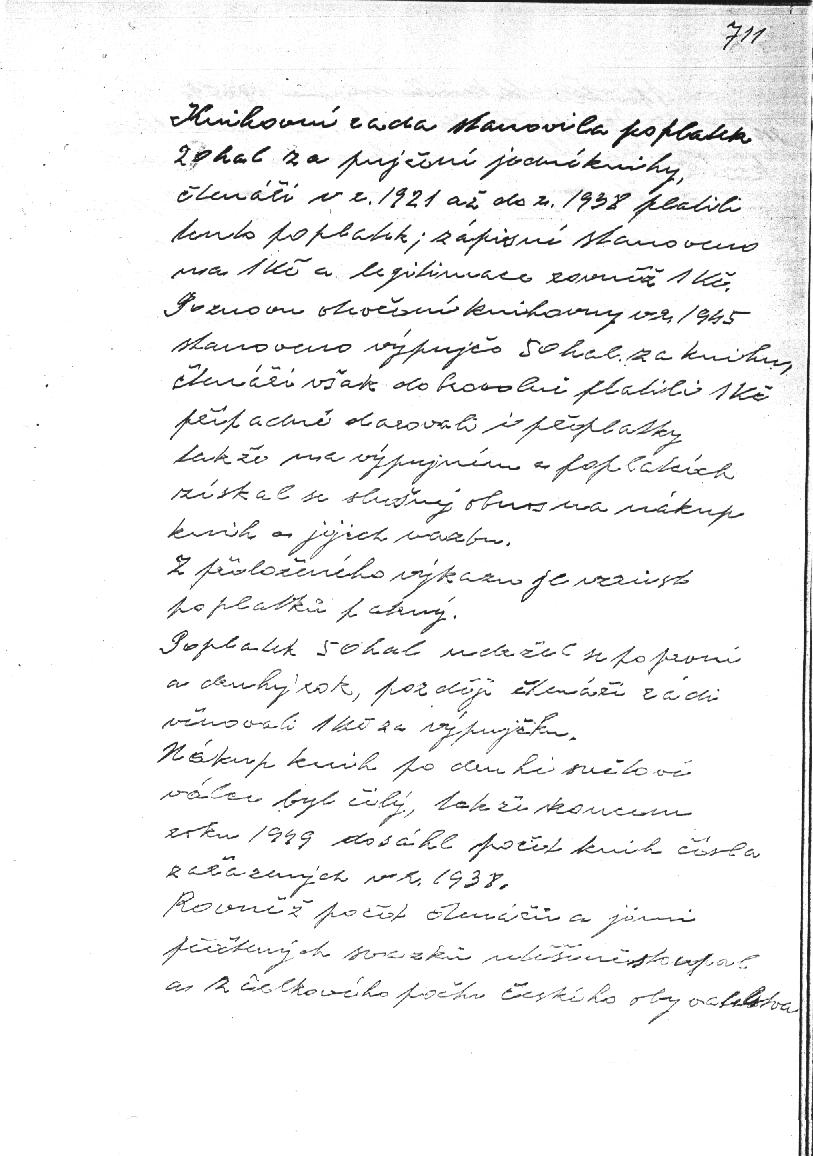 711
Knihovní rada stanovila poplatek
20 hal za pujčení jedné knihy,
čtenáři v r. 1921 až do r. 1938 platili
tento poplatek; zápisné stanoveno
na 1Kč a legitimace rovněž 1Kč.
Poznovu otevření knihovny v r. 1945
stanoveno výpujčné 50 hal. za knihu,
čtenáři však dobrovolně platili 1Kč
případně darovali i přeplatky
takže na výpujním a poplatcích
získal se slušný obnos na nákup
knih a jejich vazbu.
Z přiloženého výkazu je vzrůst
poplatků patrný.
Poplatek 50 hal udržel se po první
a druhý rok, později čtenáři rádi
věnovali 1Kč za výpujčku.
Nákup knih po druhé světové
válce byl čilý, takže koncem
roku 1949 dosáhl počet knih čísla
zařazených v r. 1938.
Rovněž počet čtenářů a jimi
přečtených svazků utěšeně stoupal
a z celkového počtu českého obyvatelstva